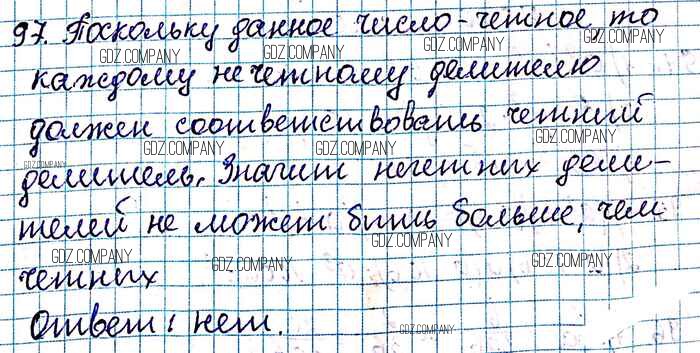 97. Поскольку данное число - четное, то
GDZ.COMPANY GDZ.COMPANY GDZ.COMPANY
каждому нечетному делителю
GDZ.COMPANY GDZ.COMPANY
должен соответствовать четний
GDZ.COMPANY GDZ.COMPANY GDZ.COMPANY
делитель. Значит нечетних дели-
телей не может бить больше, чем
GDZ.COMPANY GDZ.COMPANY GDZ.COMPANY GDZ.COMPANY
четних
Ответ: нет.
GDZ.COMPANY